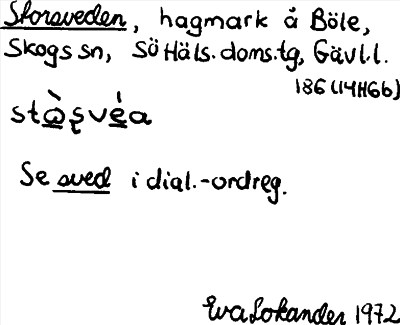 Storsveden, hagmark å Böle,
Skogs sn, SÖ Häls. doms.tg, Gävl.l.
186 (14H6b)
Se sved i dial.-ordreg.
Eva Lokander 1972